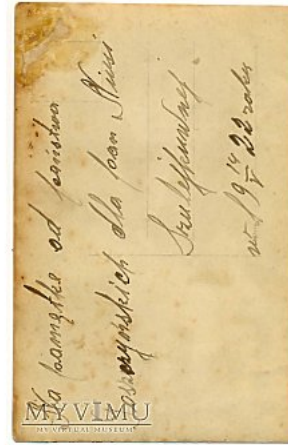 Na pamiątkę od państwa
dla pan Niusi
w 19 14/V 22 roku
MYVIMU
MY VIRTUAL MUSEUM